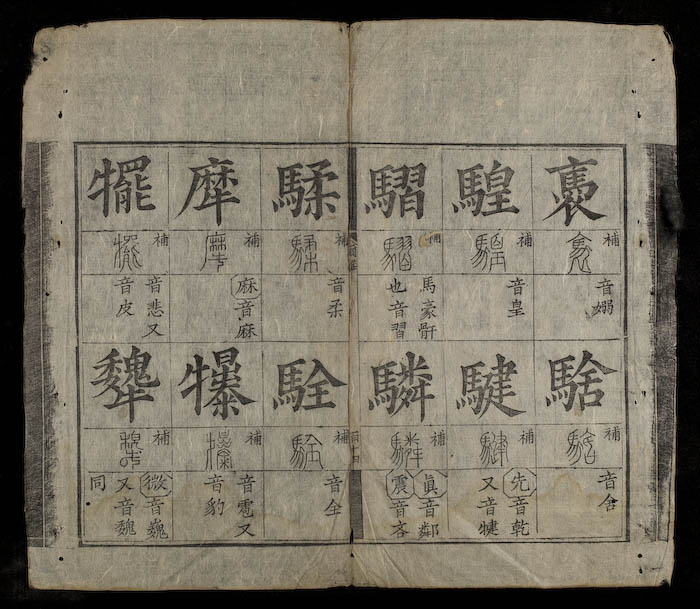 褭
補
音嫋
騜
補
音皇
騽
補
馬豪骭
也音習
騥
補
音柔
犘
補
麻音麻
犤
補
音悲又
音皮
騇
補
音舍
騝
補
先音乾
又音犍
驎
補
眞音鄰
震音吝
駩
補
音全
犦
補
音雹又
音豹
犩
補
微音巍
又音魏
同